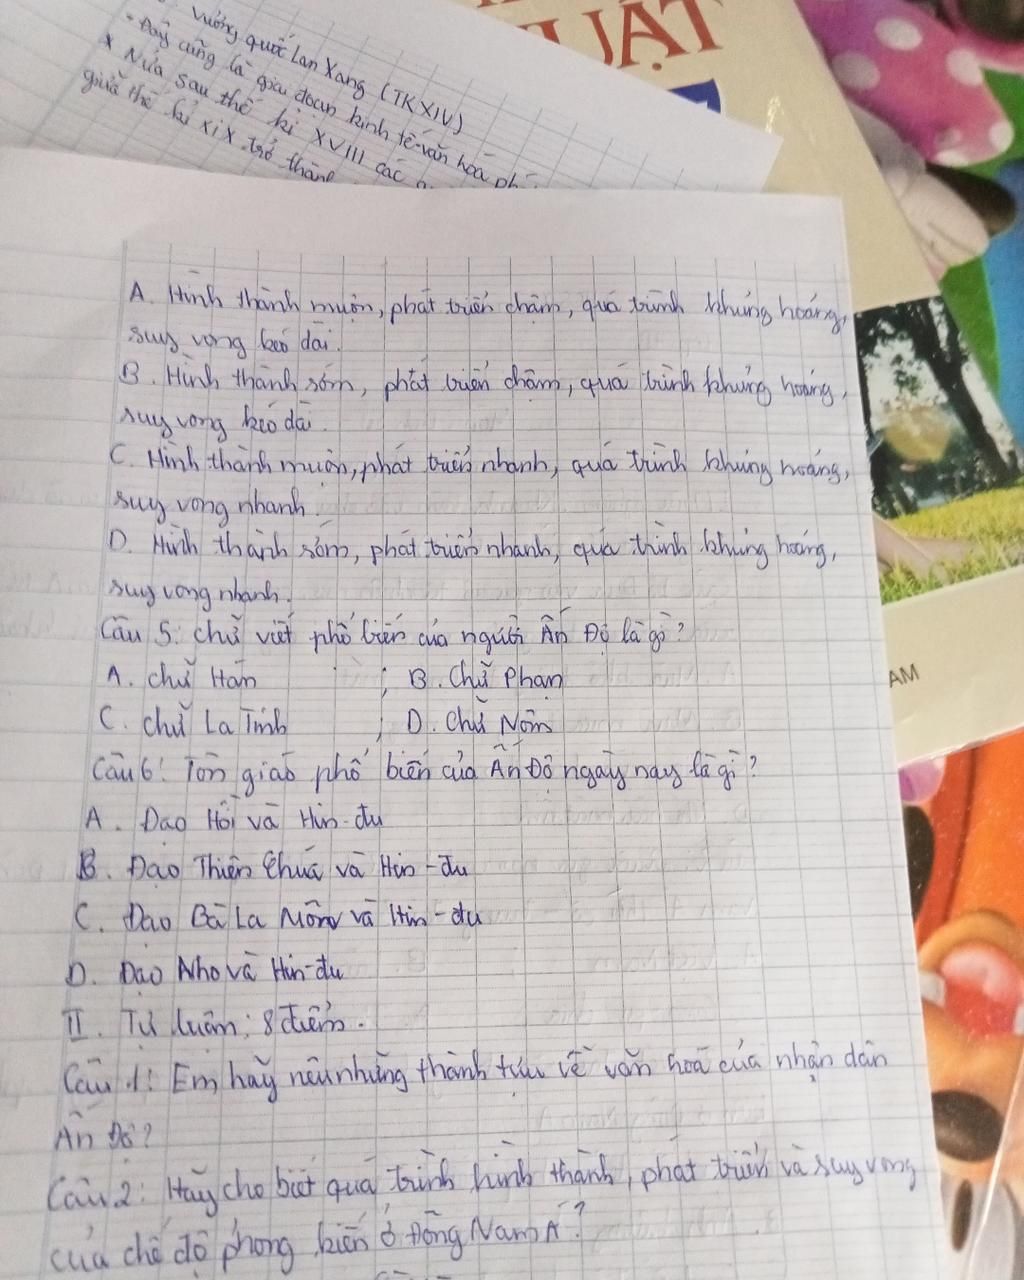 Vương quốc Lan Xang (TK XIV)
- Đây cũng là giai đoạn kinh tế-văn hoá
* Nửa sau thế kỉ XVIII các
giữa thế kỉ XIX trở thành
UẬT
A. Hình thành muộn, phát triển chậm, quá trình khủng hoảng,
suy vong kéo dài.
B. Hình thành sớm, phát triển chậm, quá trình khủng hoảng,
suy vong kéo dài.
C. Hình thành muộn, phát triển nhanh, quá trình khủng hoảng,
suy vong nhanh
D. Hình thành sớm, phát triển nhanh, quá trình khủng hoảng,
suy vong nhanh.
Câu 5: Chữ viết phổ biến của người Ấn Độ là gì?
A. Chữ Hán ; B. Chữ Phạn
C. Chữ La Tinh ; D. Chữ Nôm
Câu 6: Tôn giáo phổ biến của Ấn Độ ngày nay là gì?
A. Đạo Hồi và Hin-đu
B. Đạo Thiên Chúa và Hin-đu
C. Đạo Bà La Môn và Hin-đu
D. Đạo Nho và Hin-đu
II. Tự luận: 8 điểm.
Câu 1: Em hãy nêu những thành tựu về văn hoá của nhân dân
Ấn Độ?
Câu 2: Hãy cho biết quá trình hình thành, phát triển và suy vong
của chế độ phong kiến ở Đông Nam Á?
AM